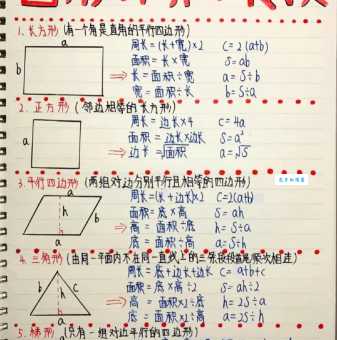 1. 长方形 (有一个角是直角的平行四边形)
a
b
周长=(长+宽)×2 C=2(a+b)
面积=长×宽 S=ab
⇒ 长=面积÷宽 a=S÷b
宽=面积÷长 b=S÷a
2. 正方形 (邻边相等的长方形)
a
周长=边长×4 C=4a
面积=边长×边长 S=a²
⇒ 边长=√面积 a=√S
3. 平行四边形 (两组对边分别平行且相等的四边形)
h
b
a
周长=(长+边长)×2 C=2(a+b)
面积=底×高 S=ah
⇒ 高=面积÷底 h=S÷a
底=面积÷高 a=S÷h
4. 三角形 (由同一平面内不在同一直线上的三条线段首尾顺次相连)
b
h
c
a
周长=底+边长+边长 C=a+b+c
面积=底×高÷2 S=ah÷2
⇒ 高=面积×2÷底 h=2S÷a
底=面积×2÷高 a=2S÷h
5. 梯形 (只有一组对边平行的四边形)